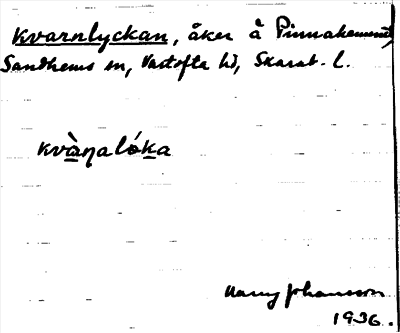 Kvarnlyckan, åker å Pinnahemmet,
Sandhems sn, Vartofta hd, Skarab. l.
kvàṇalóka
Harry Johansson
1936.